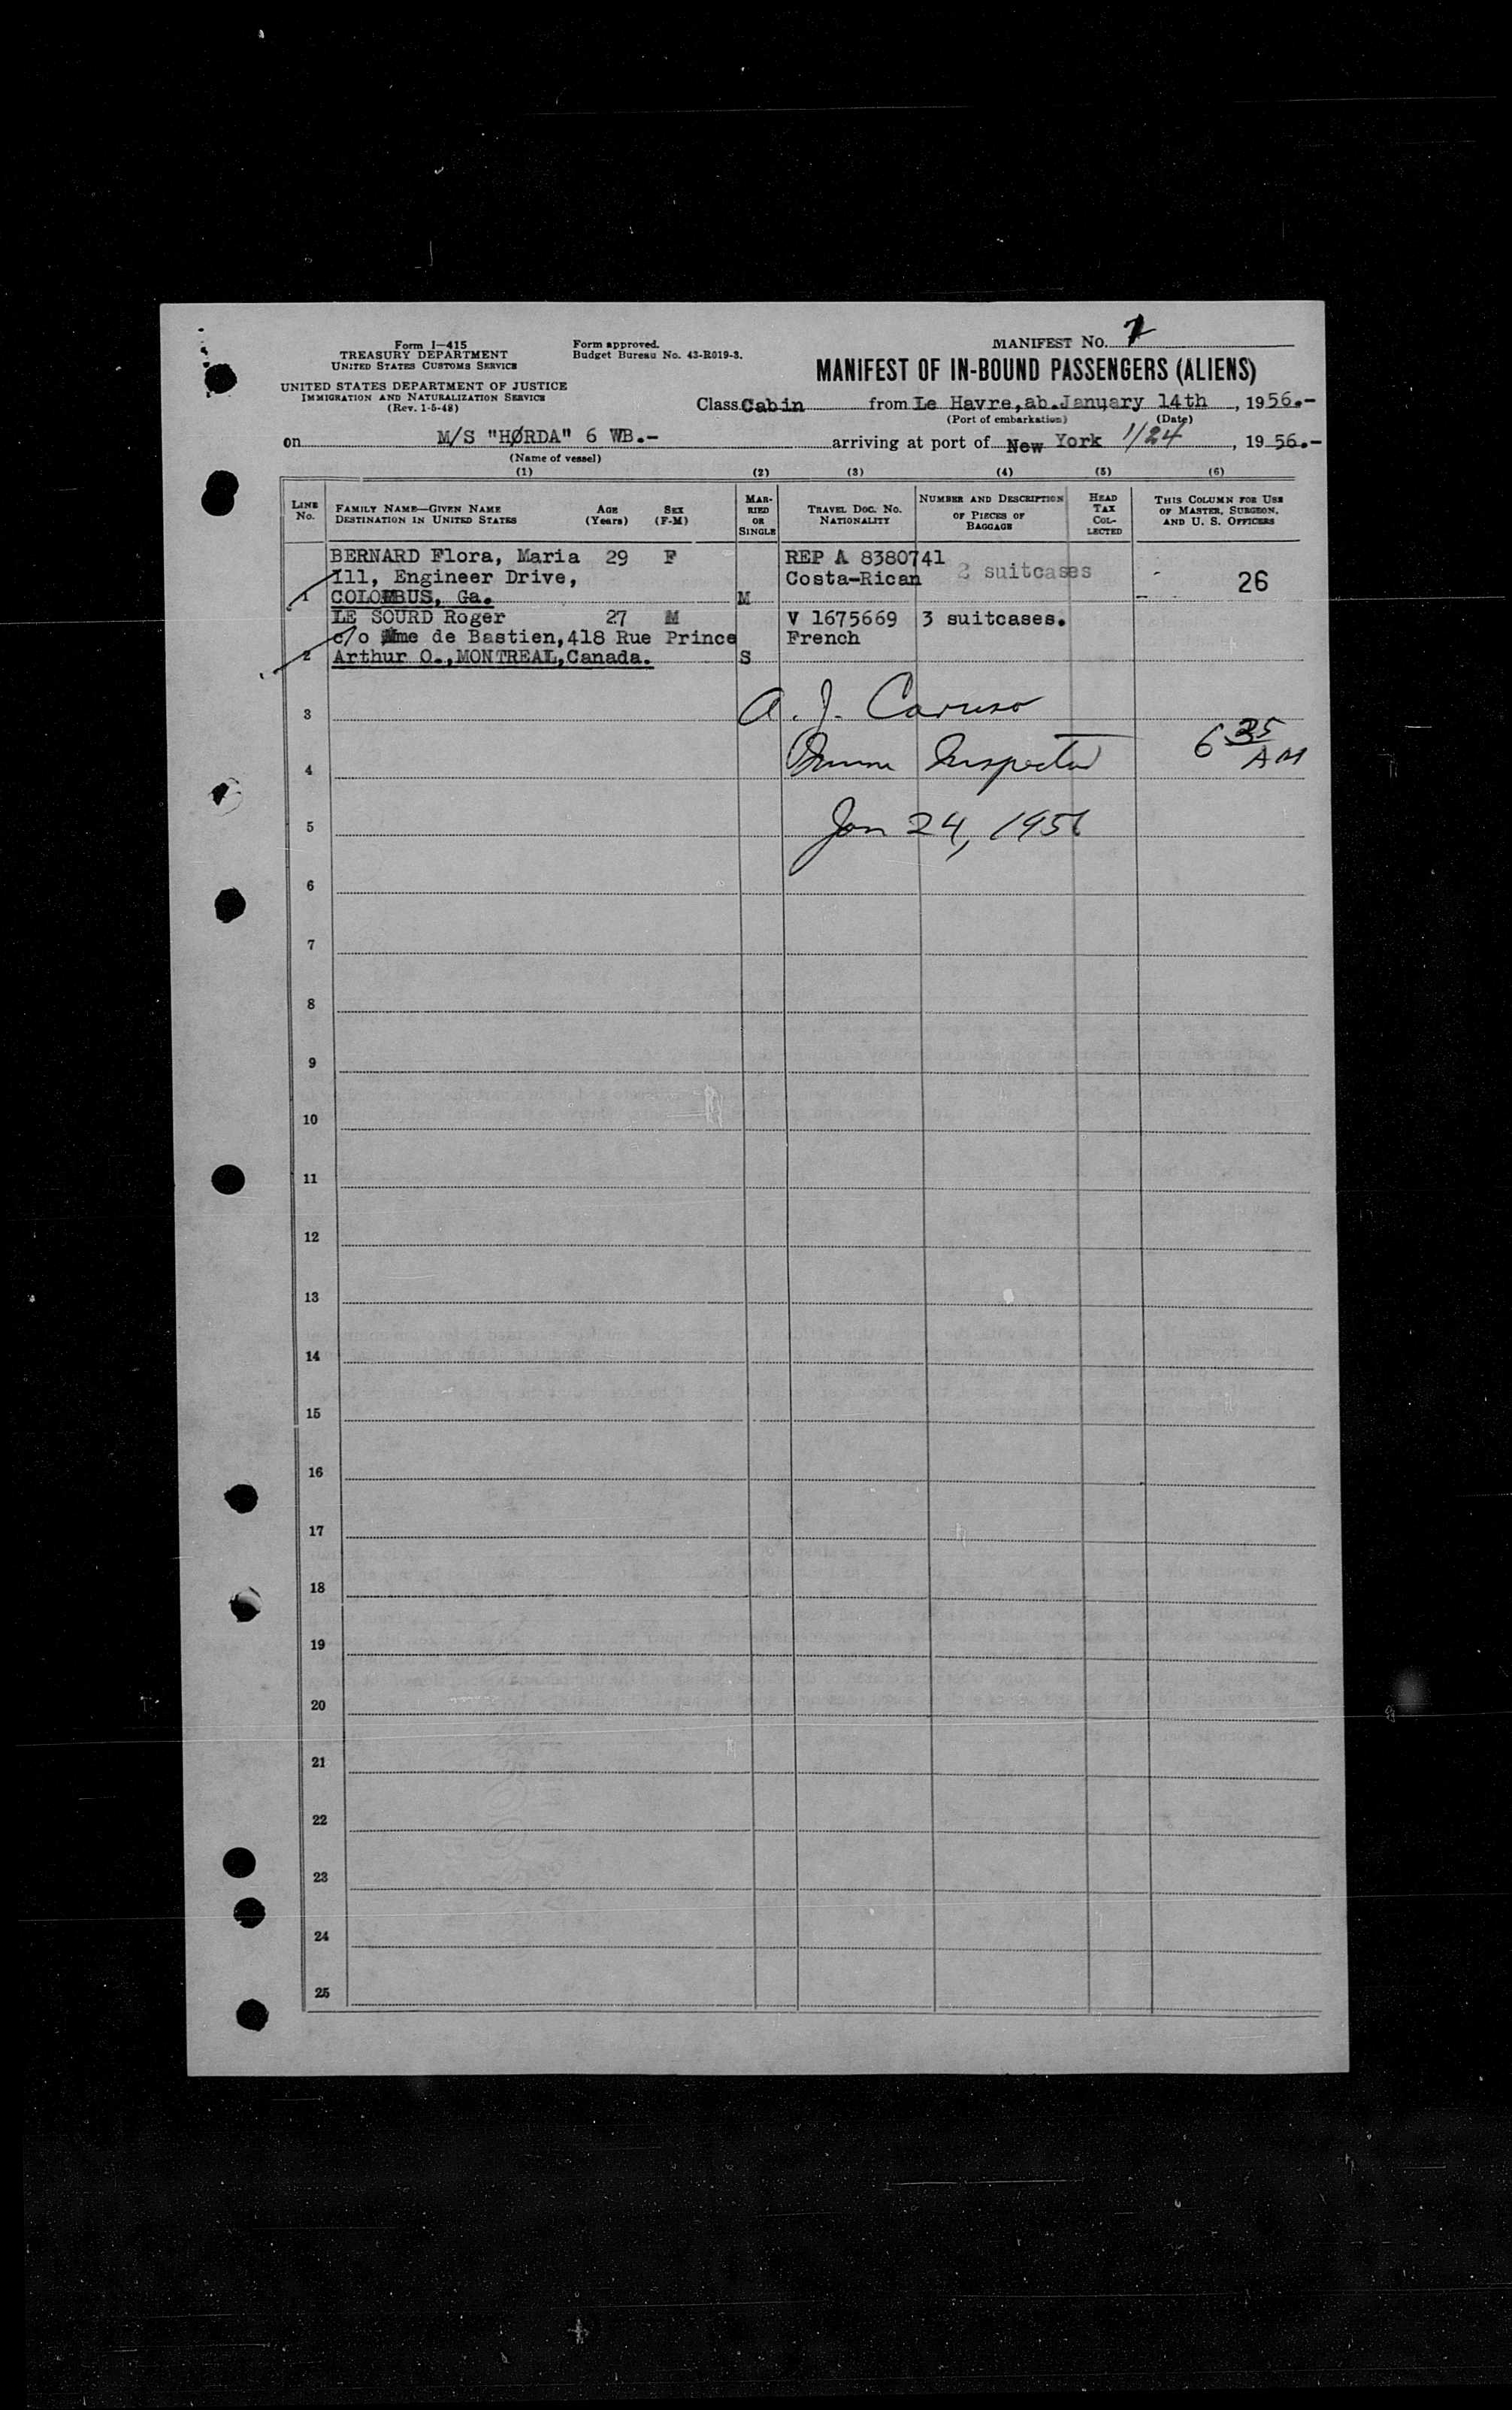 Form I—415
TREASURY DEPARTMENT
UNITED STATES CUSTOMS SERVICE
UNITED STATES DEPARTMENT OF JUSTICE
IMMIGRATION AND NATURALIZATION SERVICE
(Rev. 1-5-48)
Form approved.
Budget Bureau No. 43-R019-3.
MANIFEST NO.
MANIFEST OF IN-BOUND PASSENGERS (ALIENS)
Class Cabin from Le Havre, ab. January 14th, 1956.-
(Port of embarkation) (Date)
on M/S "HØRDA" 6 WB.- arriving at port of New York 1/24, 1956.-
(Name of vessel)
(1) (2) (3) (4) (5) (6)
LINE No. FAMILY NAME—GIVEN NAME DESTINATION IN UNITED STATES AGE (Years) SEX (F-M) MARRIED OR SINGLE TRAVEL DOC. NO. NATIONALITY NUMBER AND DESCRIPTION OF PIECES OF BAGGAGE HEAD TAX COLLECTED THIS COLUMN FOR USE OF MASTER, SURGEON, AND U. S. OFFICERS
BERNARD Flora, Maria 29 F REP A 8380741
Ill, Engineer Drive, Costa-Rican 2 suitcases 26
1 COLOMBUS, Ga. M
LE SOURD Roger 27 M V 1675669 3 suitcases.
c/o Mme de Bastien, 418 Rue Prince French
2 Arthur O., MONTREAL, Canada. S
3 A. J. Caruso
4 Imm Inspector 6 35 AM
5 Jan 24, 1956
6
7
8
9
10
11
12
13
14
15
16
17
18
19
20
21
22
23
24
25